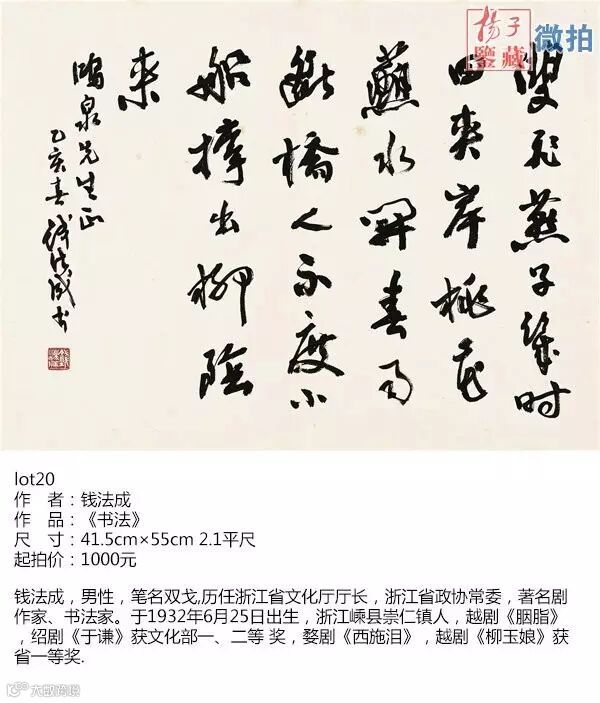 揚子
鑒藏
微拍
雙飛燕子幾时
回夾岸桃花
蘸水開春雨
斷橋人不度小
船撐出柳陰
來
鴻泉先生正
乙亥春 錢法成书
lot20
作 者：钱法成
作 品：《书法》
尺 寸：41.5cm×55cm 2.1平尺
起拍价：1000元
钱法成，男性，笔名双戈,历任浙江省文化厅厅长，浙江省政协常委，著名剧
作家、书法家。于1932年6月25日出生，浙江嵊县崇仁镇人，越剧《胭脂》
，绍剧《于谦》获文化部一、二等 奖，婺剧《西施泪》，越剧《柳玉娘》获
省一等奖.
大数跨境